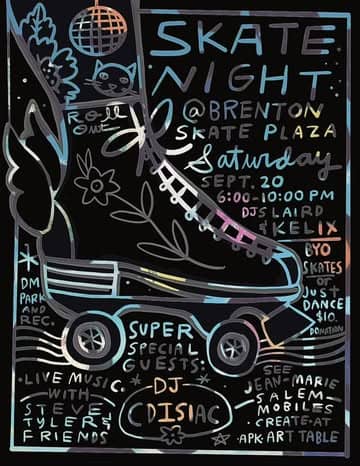 SKATE
NIGHT
@BRENTON
SKATE PLAZA
Saturday
SEPT. 20
6:00-10:00 PM
DJS LAIRD
& KELIX
BYO
SKATES
or
JUST
DANCE
$10
DONATION
Roll
Out
DM
PARK
AND
REC.
SUPER
SPECIAL
GUESTS:
·LIVE MUSIC·
WITH
STEVE
TYLER &
FRIENDS
DJ
CDISIAC
SEE
JEAN-MARIE
SALEM
MOBILES
·CREATE·AT·
APK ART TABLE